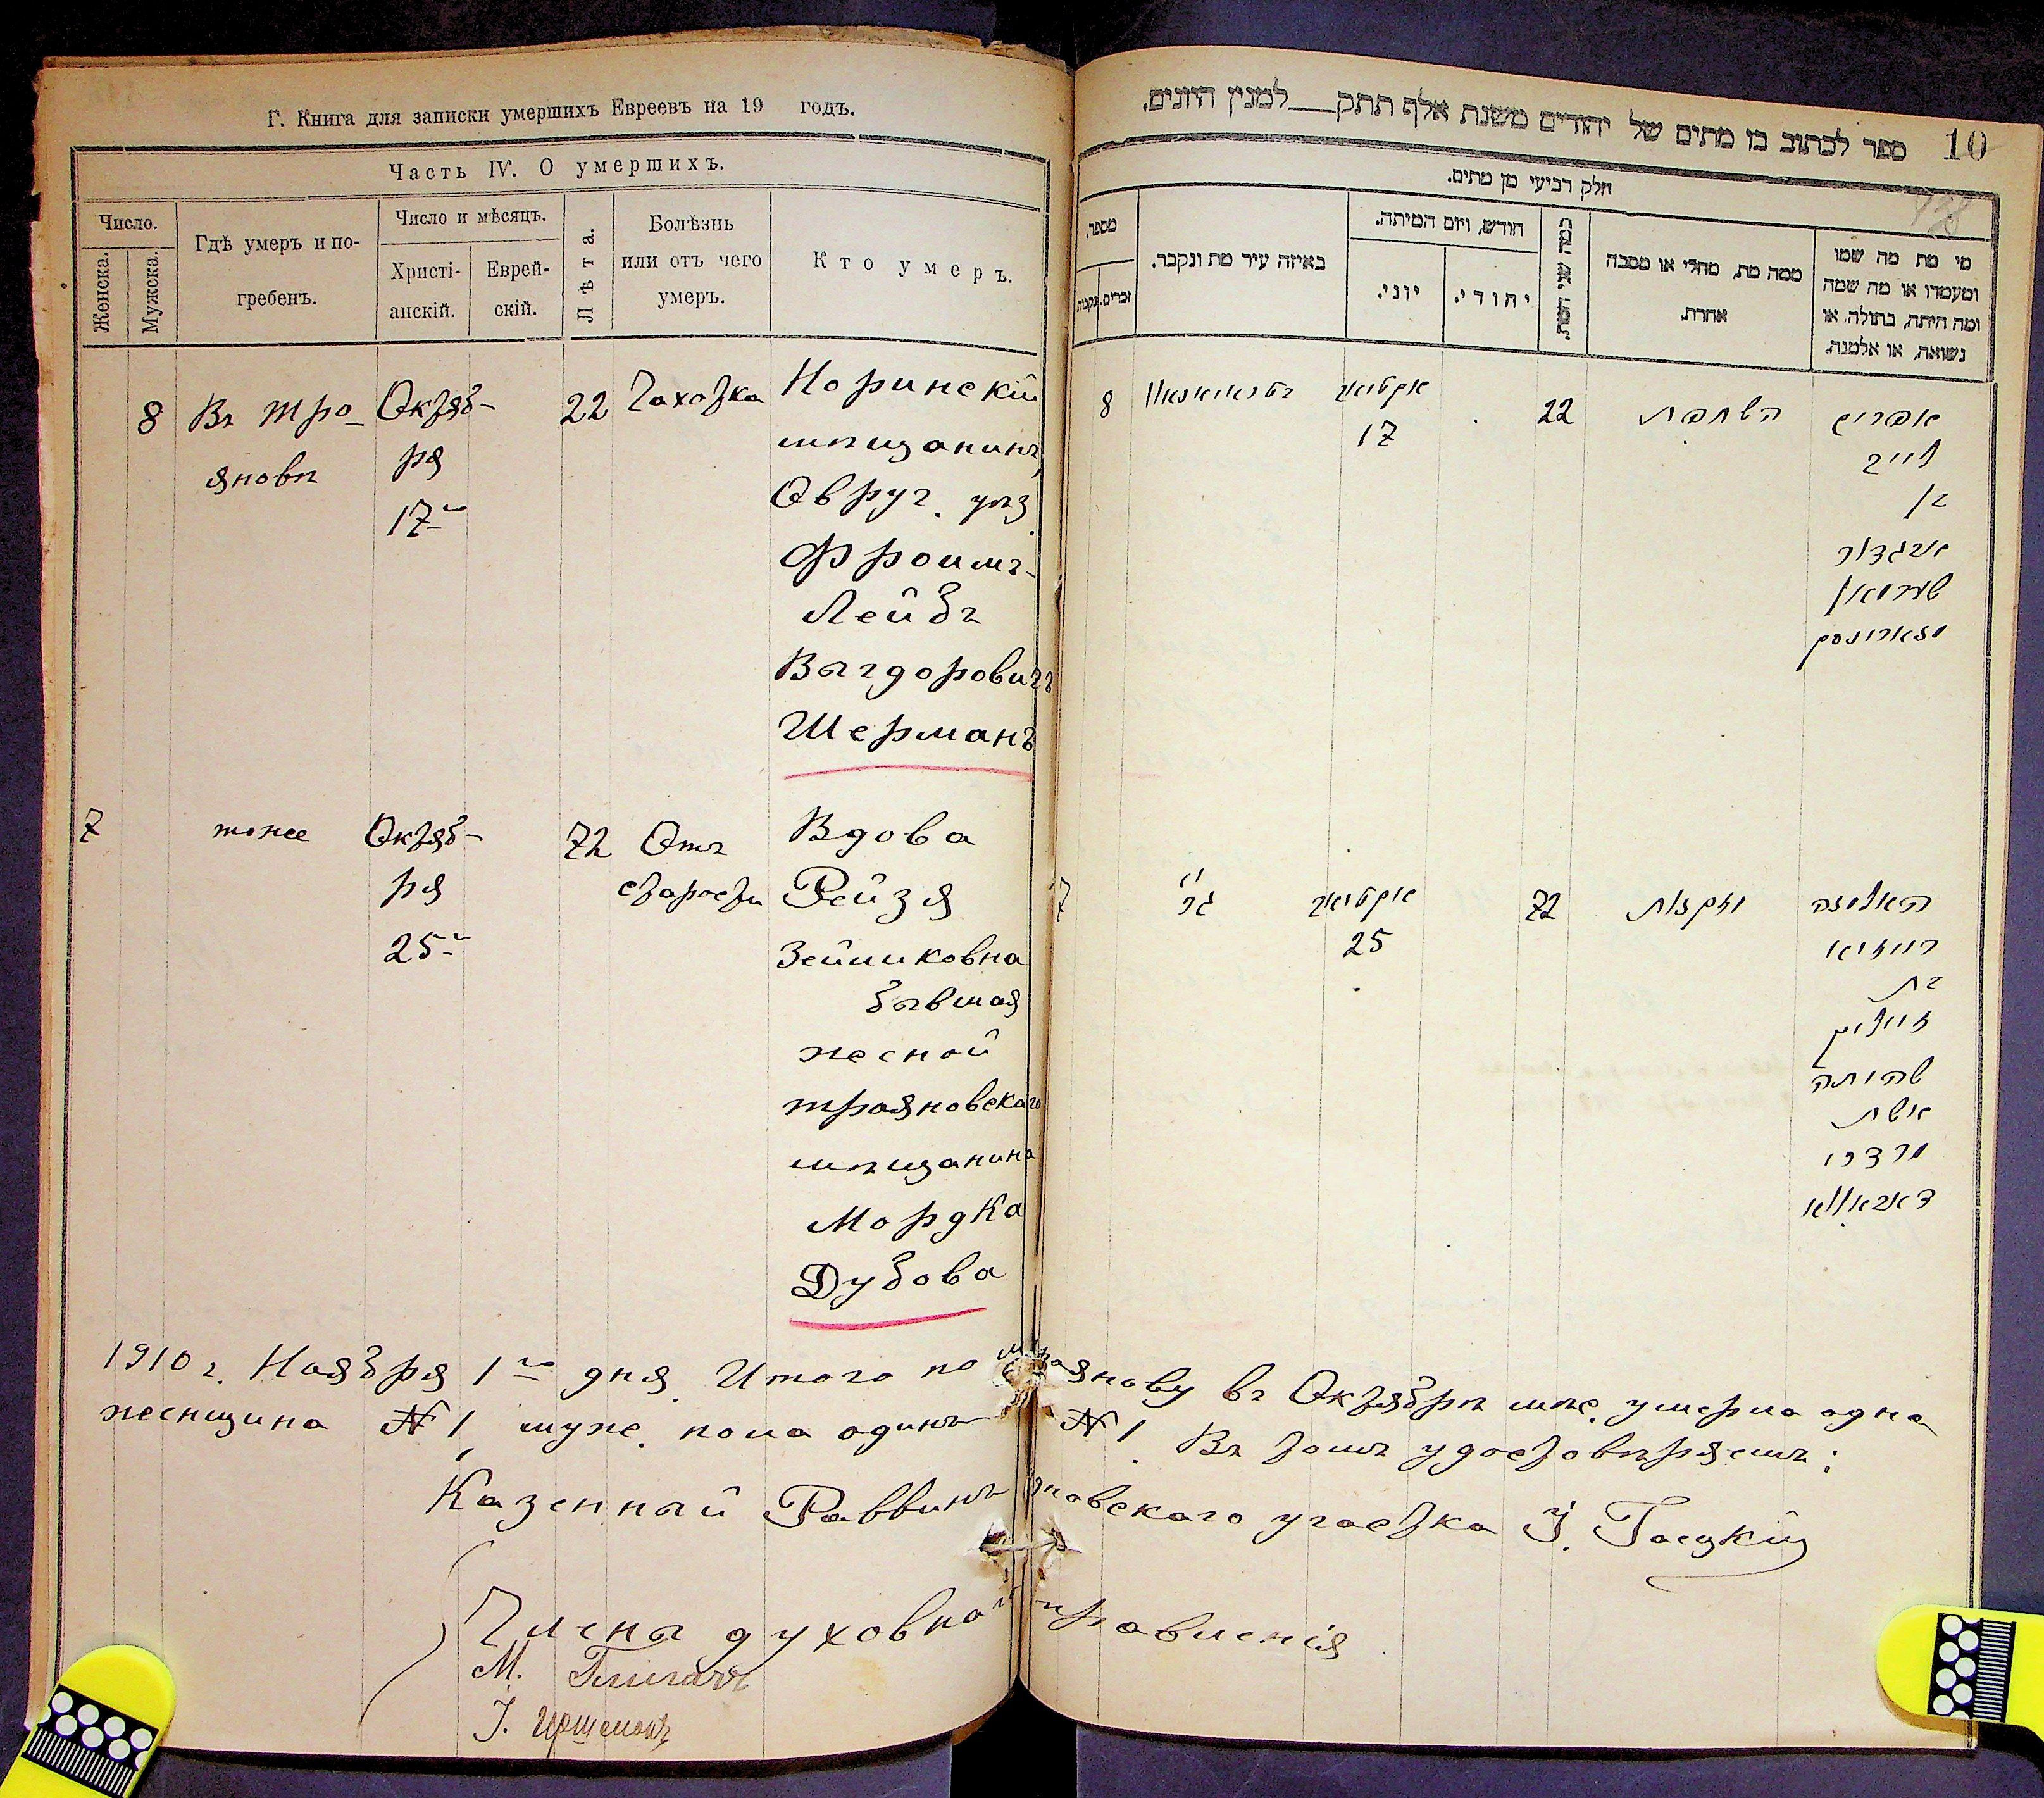 Г. Книга для записки умершихъ Евреевъ на 19 годъ.
Часть IV. О умершихъ.
Число.
Женска.
Мужска.
Гдѣ умеръ и по-
гребенъ.
Число и мѣсяцъ.
Христі-
анскій.
Еврей-
скій.
Лѣта.
Болѣзнь
или отъ чего
умеръ.
Кто умеръ.
8
Въ Тро-
яновѣ
Октяб-
ря
17го
22
Чахотка
Норинскій
мѣщанинъ,
Овруч. уѣз.
Фроимъ-
Лейбъ
Выгдоровичъ
Шерманъ
7
тоже
Октяб-
ря
25го
72
Отъ
старости
Вдова
Рейзя
Зейликовна
бывшая
женой
трояновскаго
мѣщанина
Мордка
Дубова
ספר לכתוב בו מתים של יהודים משנת אלף תתק למנין היונים.
10
חלק רביעי מן מתים.
מספר.
זכרים.
נקבות.
באיזה עיר מת ונקבר.
חודש, ויום המיתה.
יוני.
יהודי.
כמה שני המת.
ממה מת, מחלי או מסבה
אחרת.
מי מת מה שמו
ומעמדו או מה שמה
ומה היתה, בתולה, או
נשואה, או אלמנה.
8
אקטיאב
17
22
השחפת
אפרים
לייב
בן
אביגדור
שערמאן
7
אקטיאב
25
72
מזקנות
האלמנה
רייזיא
בת
זיילים
שהיתה
אשת
מרדכי
1910 г. Ноября 1го дня. Итого по м. Троянову въ Октябрѣ мѣс. умерла одна
женщина № 1, муж. пола одинъ № 1. Въ томъ удостовѣряемъ:
Казенный Раввинъ Трояновскаго участка
Члены духовнаго правленія